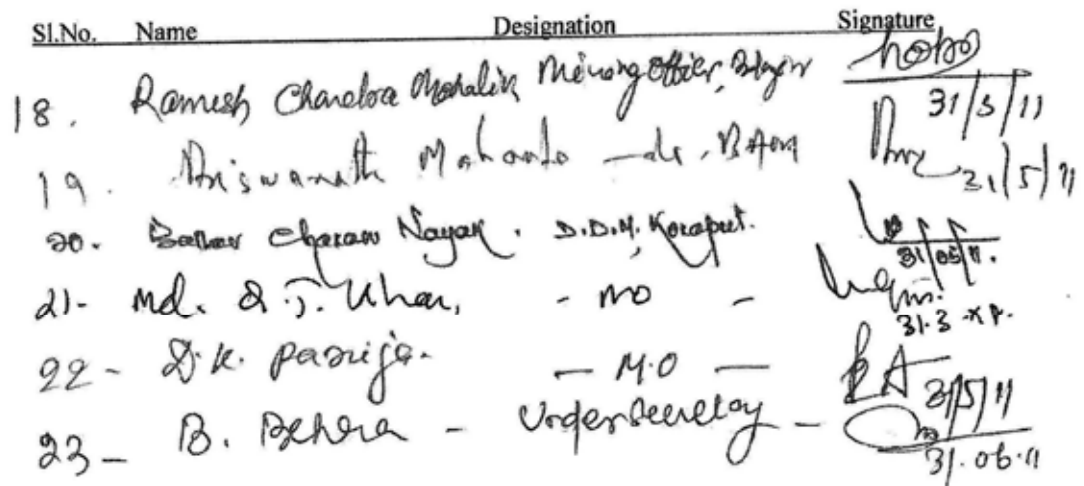 Sl.No. Name Designation Signature
18. Ramesh Chandra Mohalik Mining Officer,
31/5/11
19. Biswanath Mohanto
31/5/11
20. Charan Nayak. D.D.M. Koraput.
31/05/11.
21- Md. Q.J. Khan, - MO -
22- D.K. Parija. - M.O -
31/5/11
23- B. Behera - Undersecretary -
31.06.11